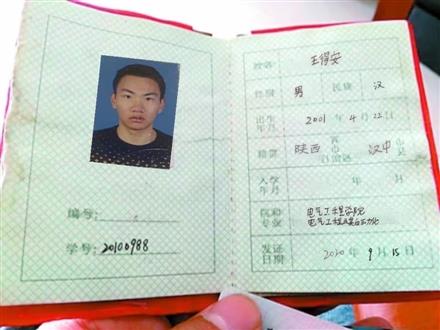 编号:
学号: 20100988
姓名 王得安
性别 男 民族 汉
出生年月 2001年4月22日
籍贯 陕西 省市自治区 汉中 市县
入学年月 年 月
院和专业 电气工程学院
电气工程及自动化
发证日期 2020年9月15日